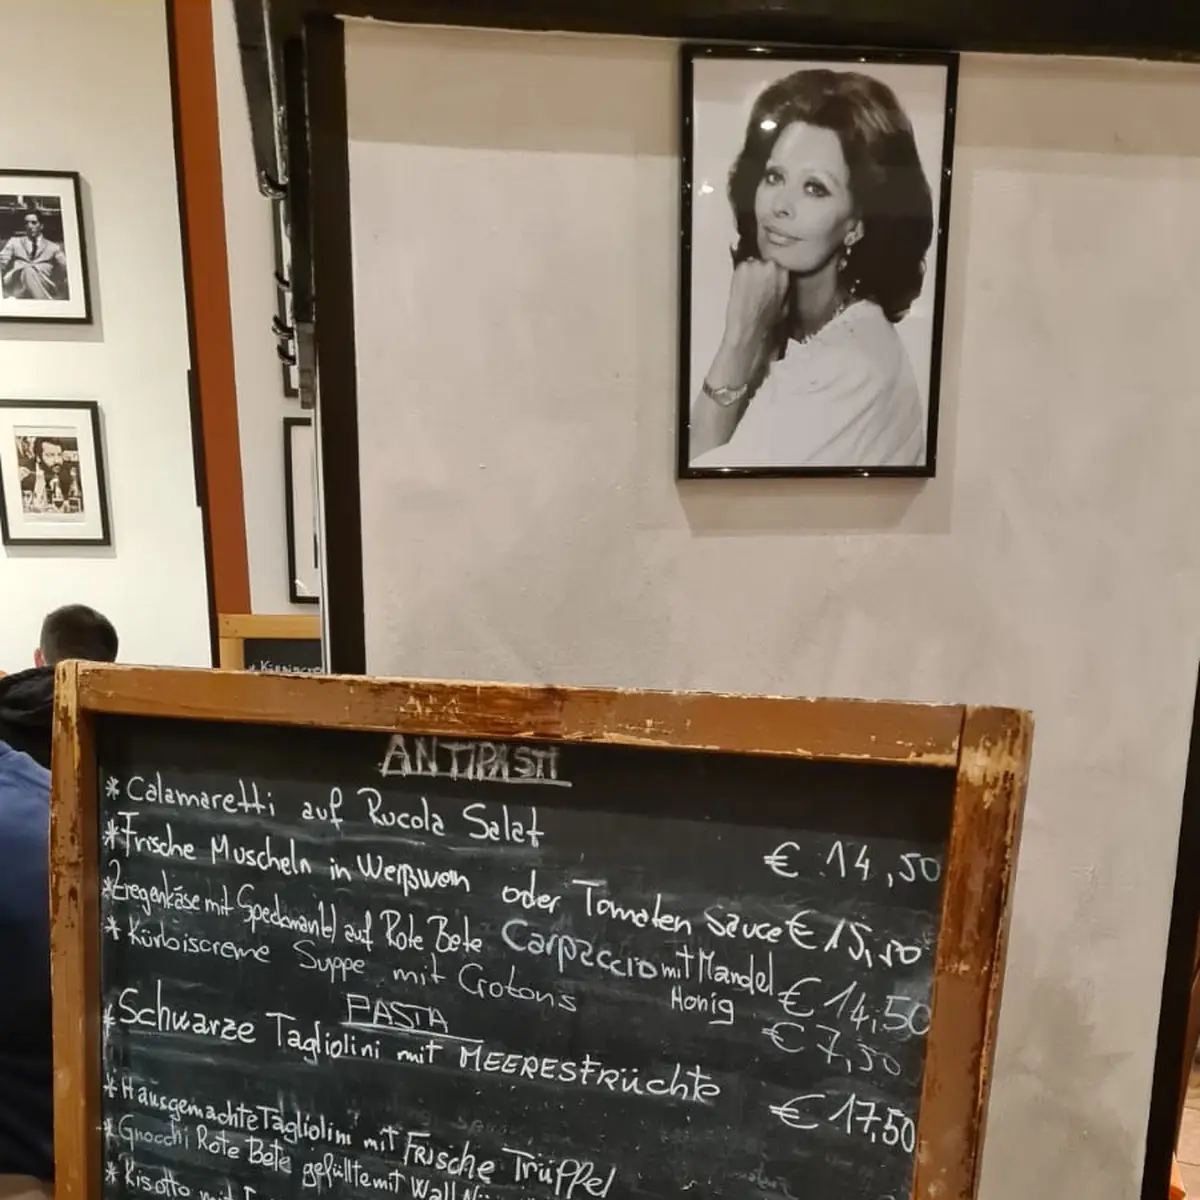 * KÜRBISCRE
ANTIPASTI
* Calamaretti auf Rucola Salat € 14,50
* Frische Muscheln in Weißwein oder Tomaten sauce € 15,50
* Ziegenkäse mit Speckmantel auf Rote Bete Carpaccio mit Mandel Honig € 14,50
* Kürbiscreme Suppe mit Crotons € 7,50
PASTA
* Schwarze Tagliolini mit MEERESFRÜCHTE € 17,50
* Hausgemachte Tagliolini mit Frische Trüffel
* Gnocchi Rote Bete gefüllte mit Wall
* Risotto mit